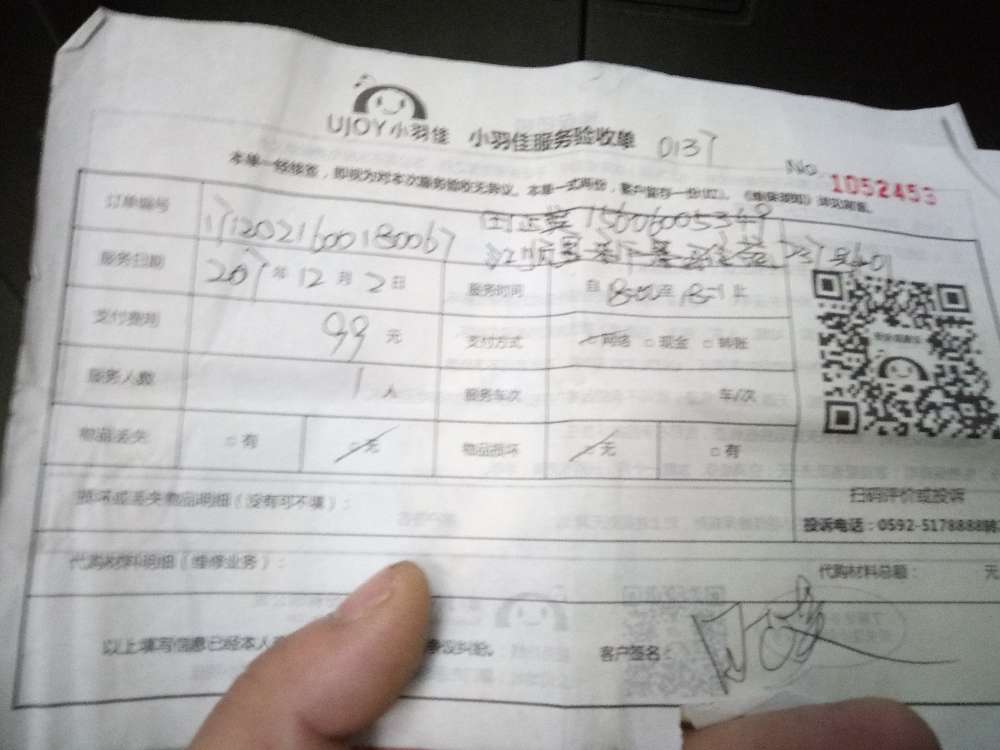 UJOY小羽佳 小羽佳服务验收单 0137
No. 1052453
本单一经核签，即视为对本次服务验收无异议。本单一式两份，客户留存一份
订单编号 1712021600180067 15606005349
服务日期 2017年12月2日 服务时间 自 至 止
支付费用 99元 支付方式 网络 □现金 □转账
服务人数 1人 服务车次 车/次
物品丢失 □有 无 物品损坏 无 □有
损坏或丢失物品明细（没有可不填）：
扫码评价或投诉
投诉电话：0592-5178888转
代购材料明细（维修业务）： 代购材料总额： 元
以上填写信息已经本人 争议纠纷。 客户签名：